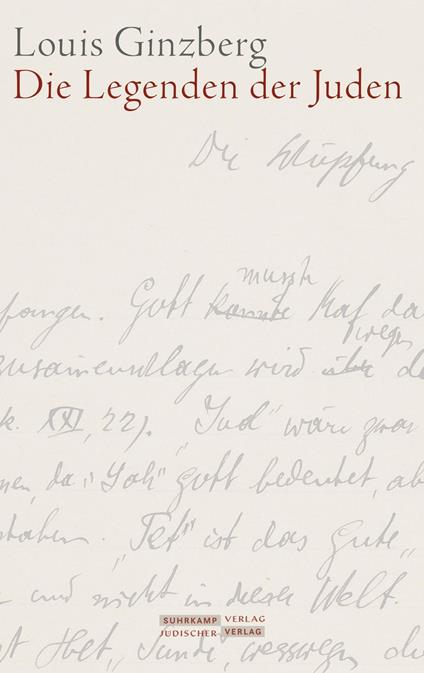 Louis Ginzberg
Die Legenden der Juden
Die Schöpfung
musste
fangen. Gott konnte Kaf da
wegen
zusammenschlagen wird de
k. XXI, 22). „Jud“ wäre zwar
nen, da „Jah“ Gott bedeutet, ab
staben. „Tet“ ist das Gute,
und nicht in dieser Welt.
SUHRKAMP VERLAG
JÜDISCHER VERLAG
st Het, Sünde, weswegen di